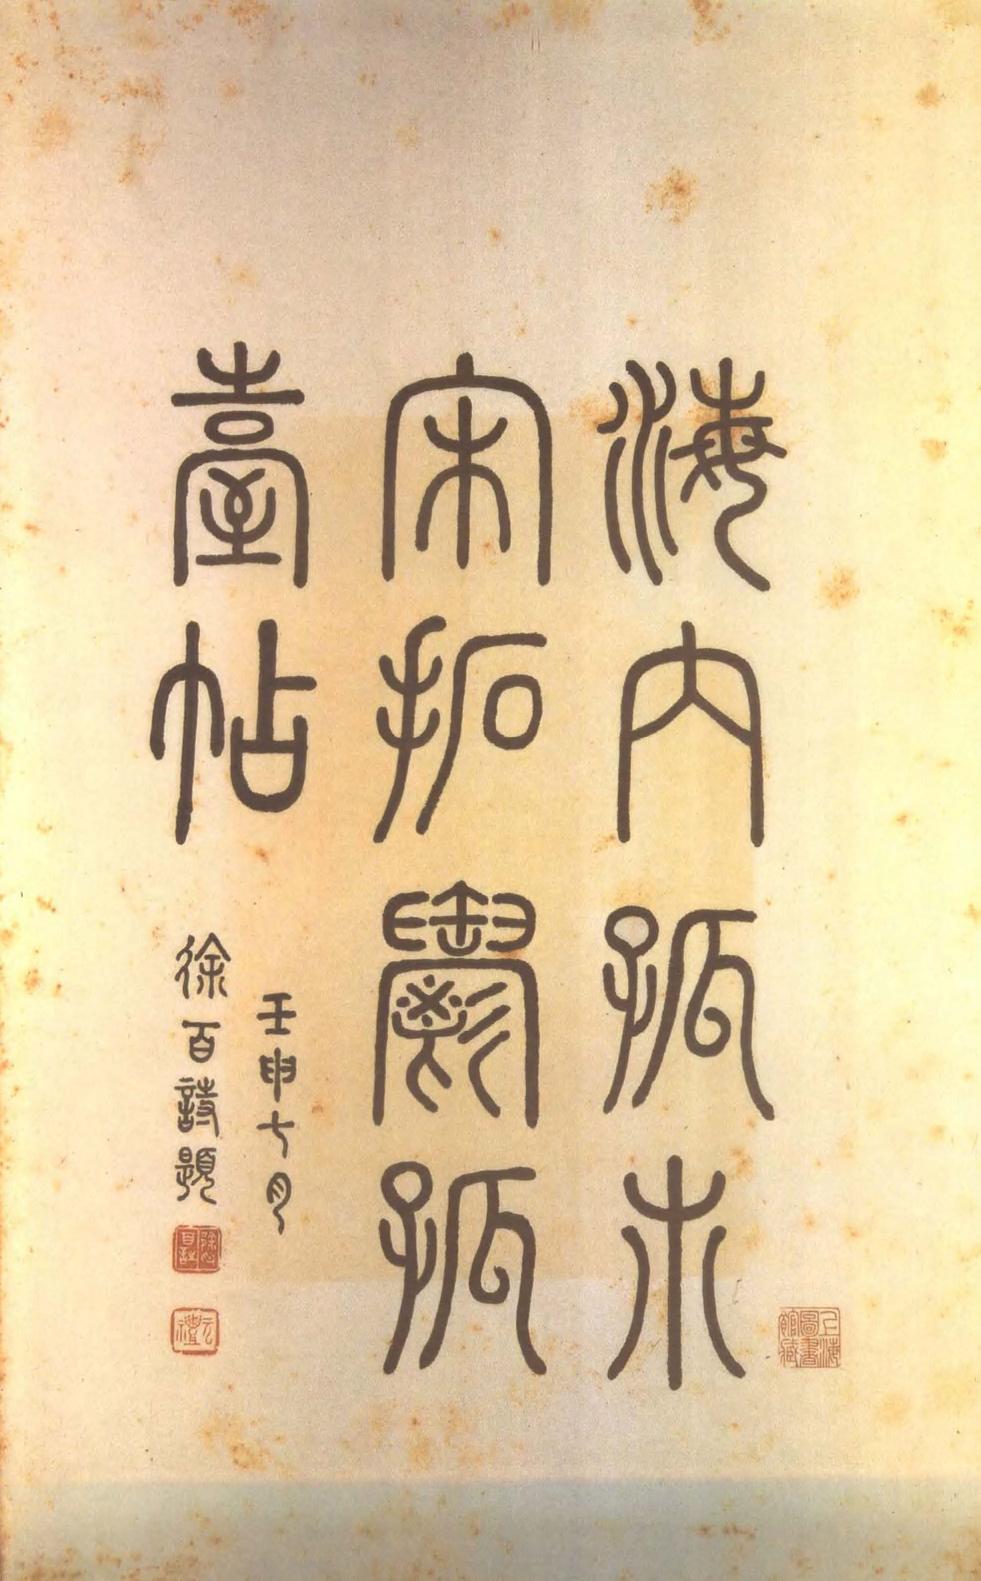 海内孤本
宋拓鬱孤
臺帖
壬申七月
徐百詩題
元禮
上海圖書館藏